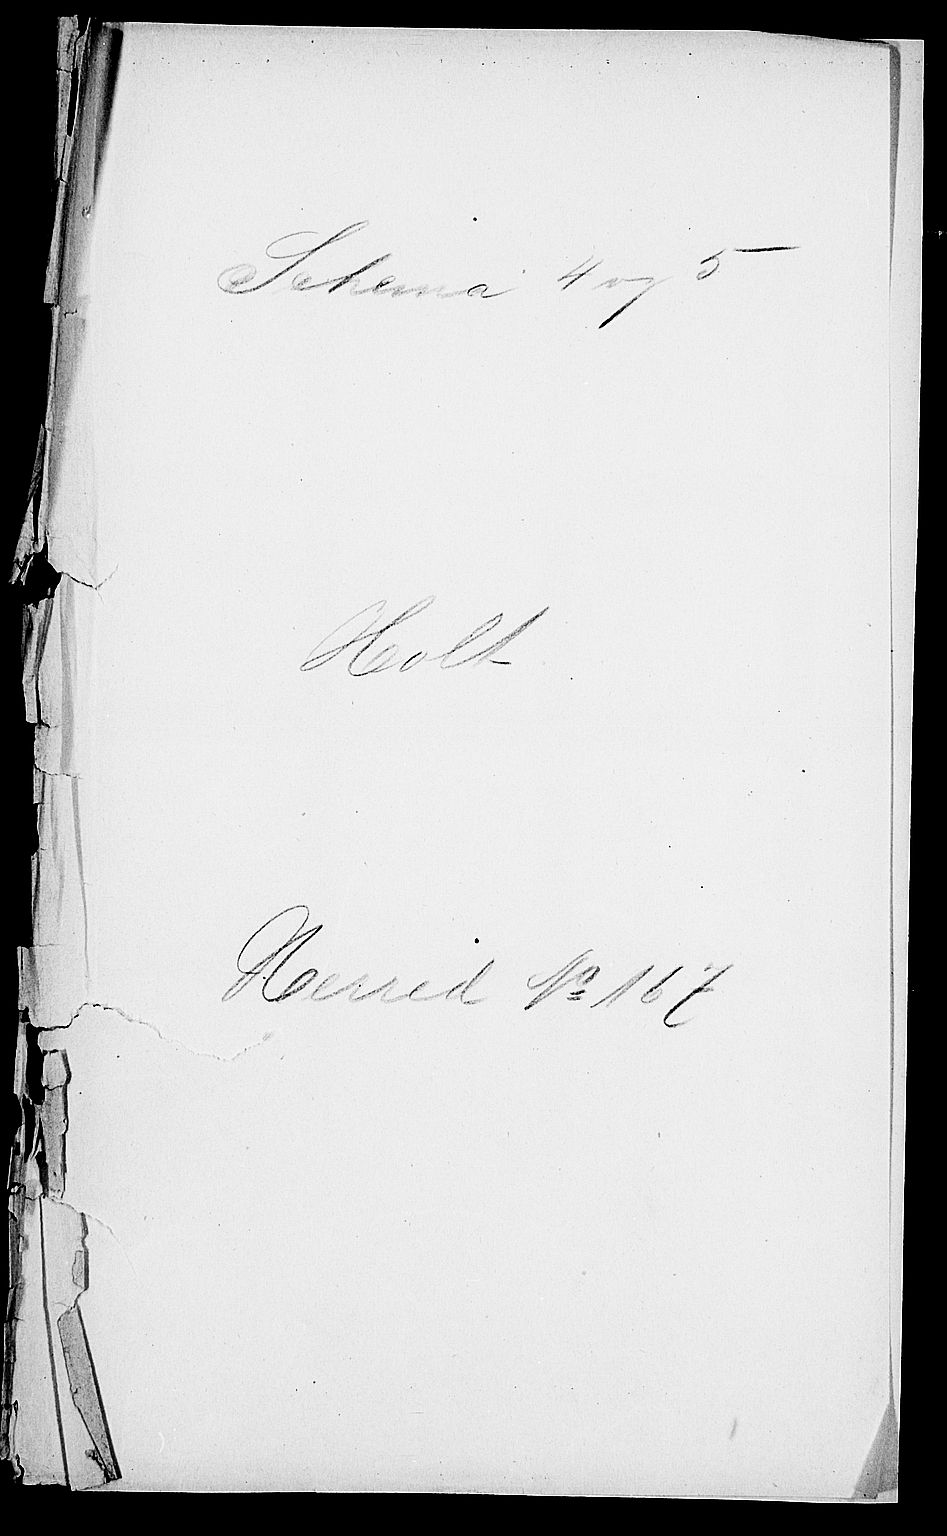 Schema 4 og 5
Holt
Herred No 167